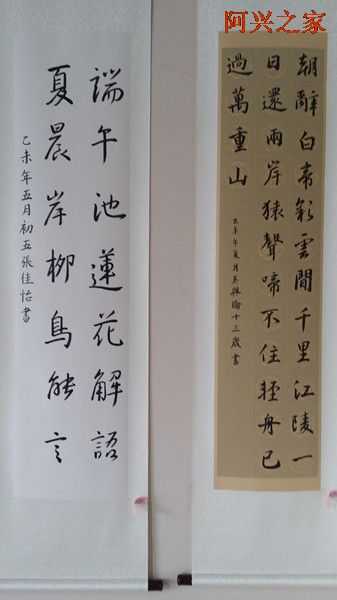 阿兴之家
朝辭白帝彩雲間千里江陵一
日還兩岸猿聲啼不住輕舟已
過萬重山
乙未年夏月十三歲書
端午池蓮花解語
夏晨岸柳鳥能言
乙未年五月初五張佳怡書